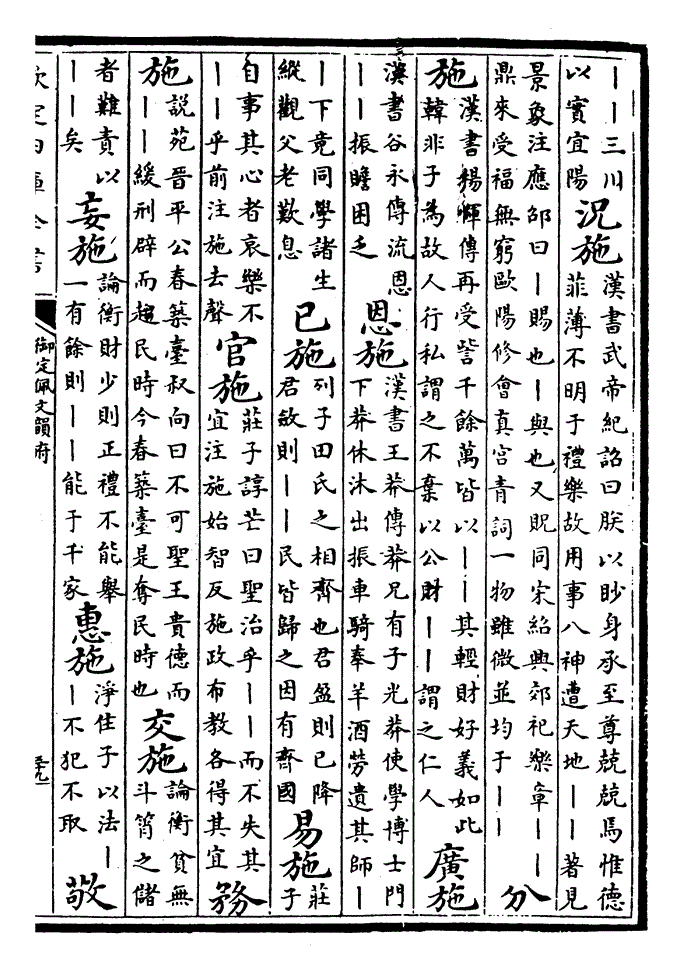 丨丨三川
以實宜陽
況施
漢書武帝紀詔曰朕以眇身承至尊兢兢焉惟德
菲薄不明于禮樂故用事八神遭天地丨丨著見
景象注應邵曰丨賜也丨與也又貺同宋紹興郊祀樂章丨丨
鼎來受福無窮歐陽修會真宮青詞一物雖微並均于丨丨
分
施
漢書楊惲傳再受訾千餘萬皆以丨丨其輕財好義如此
韓非子為故人行私謂之不棄以公財丨丨謂之仁人
廣施
漢書谷永傳流恩
丨丨振贍困乏
恩施
漢書王莽傳莽兄有子光莽使學博士門
下莽休沐出振車騎奉羊酒勞遺其師丨
丨下竟同學諸生
縱觀父老歎息
已施
列子田氏之相齊也君盈則已降
君歛則丨丨民皆歸之因有齊國
易施
莊
子
自事其心者哀樂不
丨丨乎前注施去聲
官施
莊子諄芒曰聖治乎丨丨而不失其
宜注施始智反施政布教各得其宜
務
施
說苑晉平公春築臺叔向曰不可聖王貴德而
丨丨緩刑辟而趨民時今春築臺是奪民時也
交施
論衡貧無
斗筲之儲
者難責以
丨丨矣
妄施
論衡財少則正禮不能舉
一有餘則丨丨能于千家
惠施
淨住子以法丨
丨不犯不取
敬
欽定四庫全書
御定佩文韻府